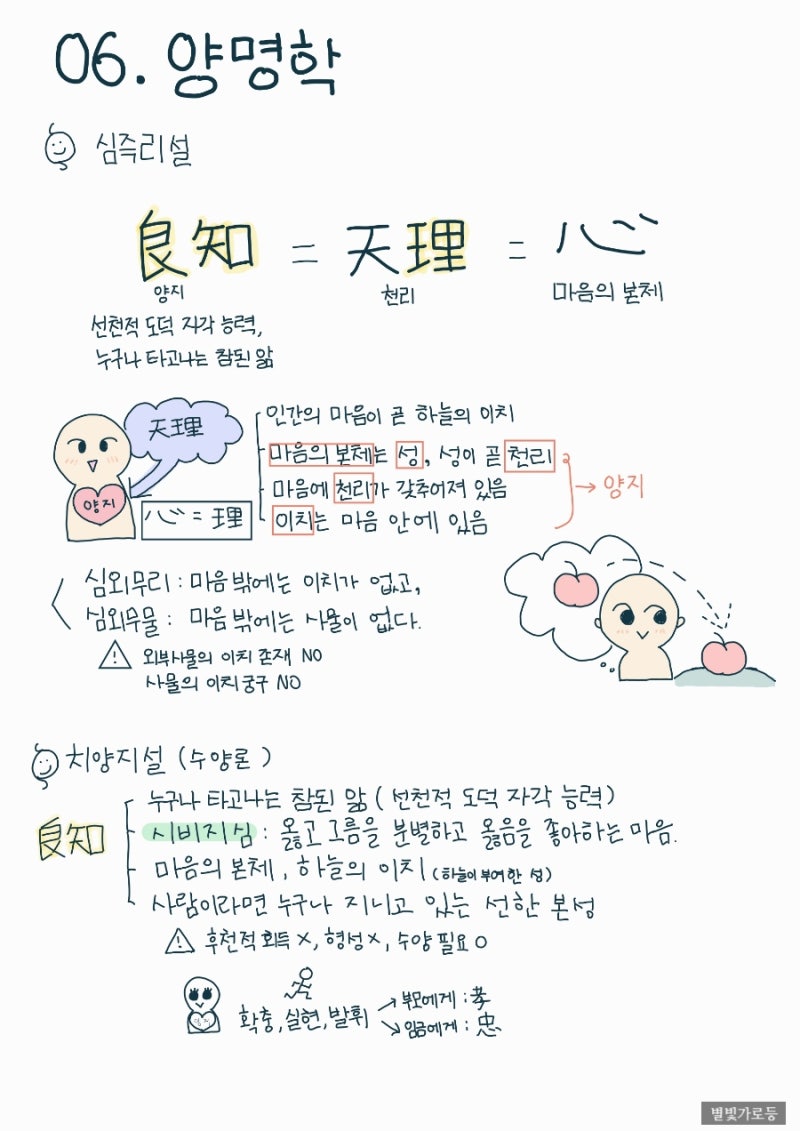 06. 양명학
심즉리설
良知 = 天理 = 心
양지 천리 마음의 본체
선천적 도덕 자각 능력,
누구나 타고나는 참된 앎
天理
양지
心 = 理
인간의 마음이 곧 하늘의 이치
마음의 본체는 성, 성이 곧 천리
마음에 천리가 갖추어져 있음
이치는 마음 안에 있음
→ 양지
심외무리 : 마음 밖에는 이치가 없고,
심외무물 : 마음 밖에는 사물이 없다.
외부사물의 이치 존재 NO
사물의 이치 궁구 NO
치양지설 (수양론)
良知
누구나 타고나는 참된 앎 (선천적 도덕 자각 능력)
시비지심 : 옳고 그름을 분별하고 옳음을 좋아하는 마음.
마음의 본체, 하늘의 이치 (하늘이 부여한 성)
사람이라면 누구나 지니고 있는 선한 본성
후천적 획득 X, 형성 X, 수양 필요 O
양지
확충, 실현, 발휘
부모에게 : 孝
임금에게 : 忠
별빛가로등